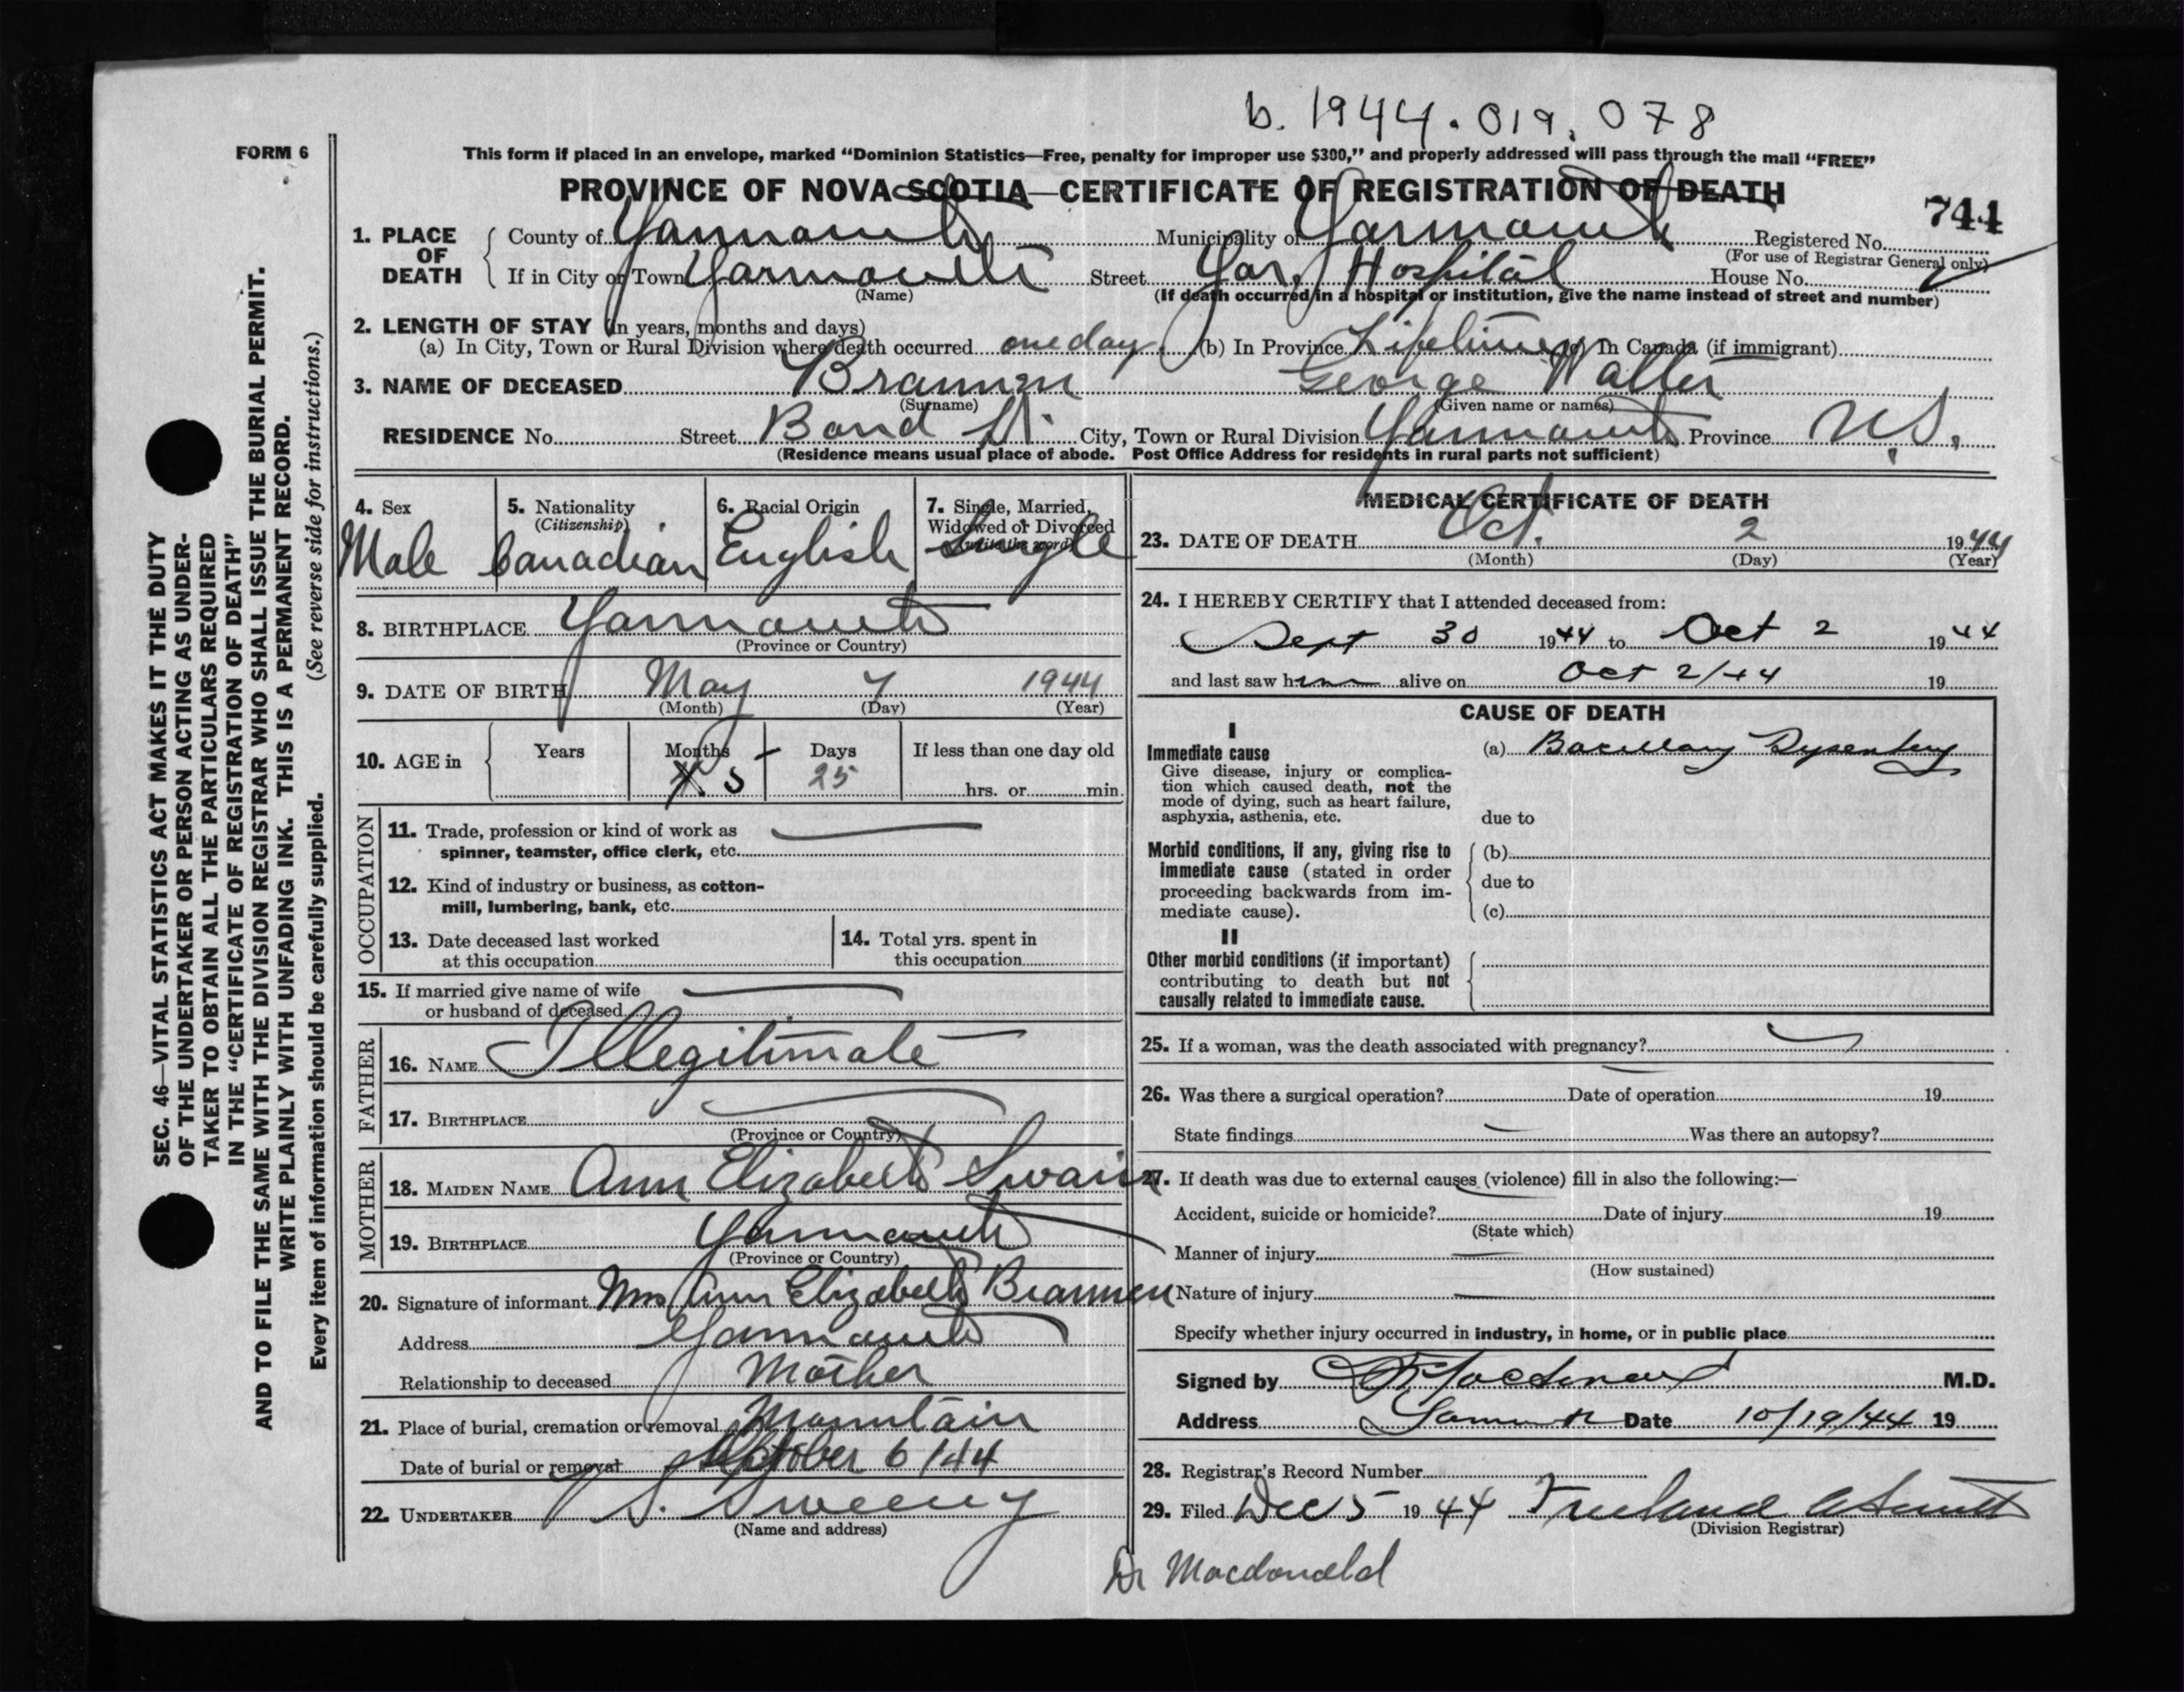 b. 1944.019.078
FORM 6
This form if placed in an envelope, marked “Dominion Statistics—Free, penalty for improper use $300,” and properly addressed will pass through the mail “FREE”
PROVINCE OF NOVA SCOTIA—CERTIFICATE OF REGISTRATION OF DEATH
744
1. PLACE OF DEATH County of Yarmouth Municipality of Yarmouth Registered No.
(For use of Registrar General only)
If in City or Town Yarmouth Street Yar. Hospital House No.
(Name) (If death occurred in a hospital or institution, give the name instead of street and number)
2. LENGTH OF STAY (in years, months and days)
(a) In City, Town or Rural Division where death occurred one day (b) In Province Lifetime (c) In Canada (if immigrant)
3. NAME OF DECEASED Brannen George Walter
(Surname) (Given name or names)
RESIDENCE No. Street Bond St. City, Town or Rural Division Yarmouth Province N.S.
(Residence means usual place of abode. Post Office Address for residents in rural parts not sufficient)
4. Sex 5. Nationality 6. Racial Origin 7. Single, Married,
(Citizenship) Widowed or Divorced
(write the word)
Male Canadian English Single
8. BIRTHPLACE Yarmouth
(Province or Country)
9. DATE OF BIRTH May 7 1944
(Month) (Day) (Year)
10. AGE in Years Months Days If less than one day old
5 25 hrs. or min.
OCCUPATION
11. Trade, profession or kind of work as
spinner, teamster, office clerk, etc.
12. Kind of industry or business, as cotton-
mill, lumbering, bank, etc.
13. Date deceased last worked 14. Total yrs. spent in
at this occupation this occupation
15. If married give name of wife
or husband of deceased
FATHER
16. NAME Illegitimate
17. BIRTHPLACE
(Province or Country)
MOTHER
18. MAIDEN NAME Ann Elizabeth Swain
19. BIRTHPLACE Yarmouth
(Province or Country)
20. Signature of informant Mrs Ann Elizabeth Brannen
Address Yarmouth
Relationship to deceased Mother
21. Place of burial, cremation or removal Mountain
Date of burial or removal October 6/44
22. UNDERTAKER V. S. Sweeny
(Name and address)
MEDICAL CERTIFICATE OF DEATH
23. DATE OF DEATH Oct. 2 1944
(Month) (Day) (Year)
24. I HEREBY CERTIFY that I attended deceased from:
Sept 30 1944 to Oct 2 1944
and last saw him alive on Oct 2/44 19
CAUSE OF DEATH
I
Immediate cause (a) Bacillary Dysentery
Give disease, injury or complica-
tion which caused death, not the
mode of dying, such as heart failure,
asphyxia, asthenia, etc. due to
Morbid conditions, if any, giving rise to (b)
immediate cause (stated in order
proceeding backwards from im- due to
mediate cause). (c)
II
Other morbid conditions (if important)
contributing to death but not
causally related to immediate cause.
25. If a woman, was the death associated with pregnancy?
26. Was there a surgical operation? Date of operation 19
State findings Was there an autopsy?
27. If death was due to external causes (violence) fill in also the following:—
Accident, suicide or homicide? Date of injury 19
(State which)
Manner of injury
(How sustained)
Nature of injury
Specify whether injury occurred in industry, in home, or in public place
Signed by M.D.
Address Yarmouth Date 10/19/44 19
28. Registrar's Record Number
29. Filed Dec 5 1944 Freeland
(Division Registrar)
Dr Macdonald
SEC. 46—VITAL STATISTICS ACT MAKES IT THE DUTY
OF THE UNDERTAKER OR PERSON ACTING AS UNDER-
TAKER TO OBTAIN ALL THE PARTICULARS REQUIRED
IN THE “CERTIFICATE OF REGISTRATION OF DEATH”
AND TO FILE THE SAME WITH THE DIVISION REGISTRAR WHO SHALL ISSUE THE BURIAL PERMIT.
WRITE PLAINLY WITH UNFADING INK. THIS IS A PERMANENT RECORD.
Every item of information should be carefully supplied. (See reverse side for instructions.)